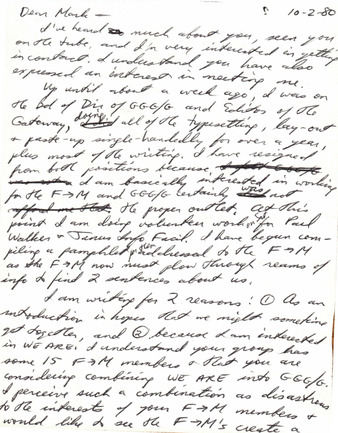 10-2-80
Dear Mark —
I've heard so much about you, seen you
on the tube, and I'm very interested in getting
in contact. I understand you have also
expressed an interest in meeting me.
Up until about a week ago, I was on
the Bd of Dir of GGG/G and Editor of the
Gateway, doing all of the typesetting, lay-out
& paste-up single-handedly for over a year,
plus most of the writing. I have resigned
from both positions because
I am basically interested in working
for the F→M and GGG/G certainly was not
the proper outlet. At this
point I am doing volunteer work for Paul
Walker & Janus Info Facil. I have begun com-
piling a pamphlet addressed to the F→M
as the F→M now must plow through reams of
info to find 2 sentences about us.
I am writing for 2 reasons: ① As an
introduction in hopes that we might sometime
get together, and ② because I am interested
in WE ARE. I understand your group has
some 15 F→M members & that you are
considering combining WE ARE into GGG/G.
I perceive such a combination as disastrous
to the interests of your F→M members &
would like to see the F→M's create a